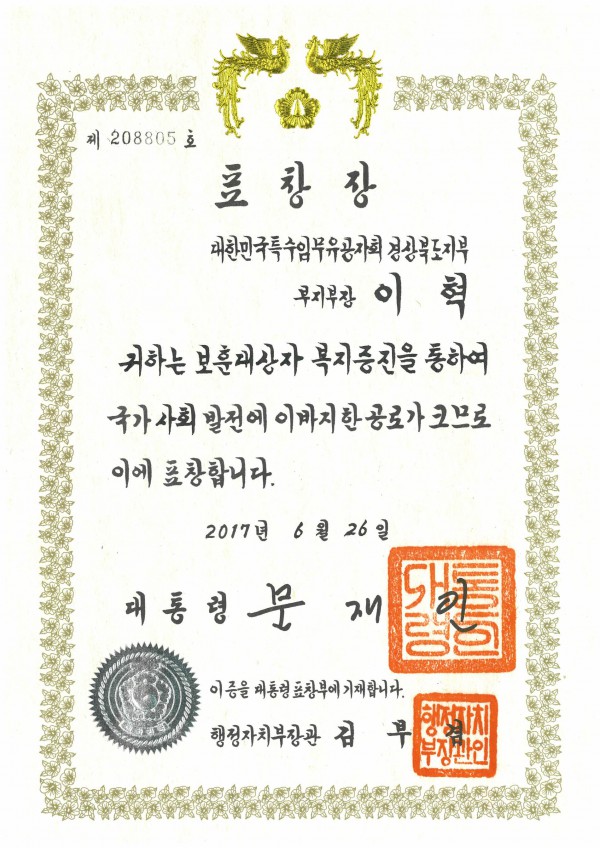 제 208805 호
표창장
대한민국특수임무유공자회 경상북도지부
부지부장 이 혁
귀하는 보훈대상자 복지증진을 통하여
국가 사회 발전에 이바지한 공로가 크므로
이에 표창합니다.
2017년 6월 26일
대통령 문 재 인
대통령의인
이 증을 대통령표창부에 기재합니다.
행정자치부장관 김 부 겸
행정자치
부장관인